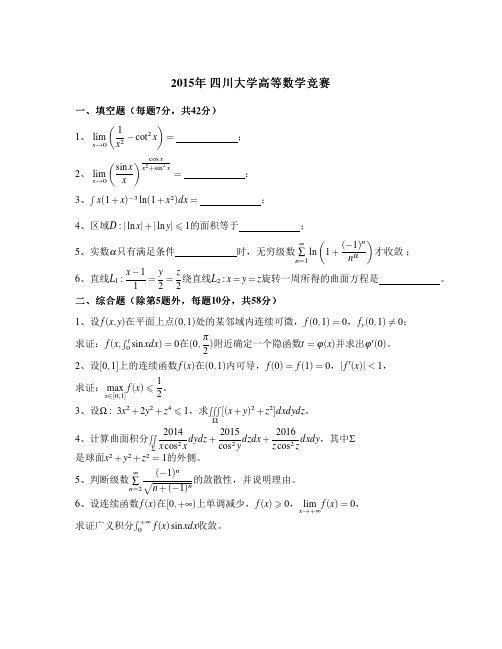 2015年 四川大学高等数学竞赛
一、填空题（每题7分，共42分）
1、 lim_{x→0} (1/x² − cot² x) = ______ ;
2、 lim_{x→0} (sin x / x)^{cos x / (x²+sin⁴ x)} = ______ ;
3、 ∫ x(1+x)⁻³ ln(1+x²)dx = ______ ;
4、区域D : |ln x| + |ln y| ⩽ 1的面积等于 ______ ;
5、实数α只有满足条件 ______ 时，无穷级数 ∑_{n=1}^{∞} ln (1 + (−1)ⁿ / n^α) 才收敛 ;
6、直线L₁ : (x−1)/1 = y/2 = z/2 绕直线L₂ : x = y = z旋转一周所得的曲面方程是 ______ 。
二、综合题（除第5题外，每题10分，共58分）
1、设f(x,y)在平面上点(0,1)处的某邻域内连续可微，f(0,1) = 0，f_y(0,1) ≠ 0；
求证：f(x, ∫₀ᵗ sin xdx) = 0在(0, π/2)附近确定一个隐函数t = φ(x)并求出φ′(0)。
2、设[0,1]上的连续函数f(x)在(0,1)内可导，f(0) = f(1) = 0，|f′(x)| < 1，
求证：max_{x∈[0,1]} f(x) ⩽ 1/2。
3、设Ω : 3x² + 2y² + z⁴ ⩽ 1，求∭_Ω [(x+y)² + z²]dxdydz。
4、计算曲面积分∬_Σ 2014/(x cos² x) dydz + 2015/(cos² y) dzdx + 2016/(z cos² z) dxdy，其中Σ
是球面x² + y² + z² = 1的外侧。
5、判断级数 ∑_{n=2}^{∞} (−1)ⁿ / √(n+(−1)ⁿ) 的敛散性，并说明理由。
6、设连续函数f(x)在[0,+∞)上单调减少，f(x) ⩾ 0，lim_{x→+∞} f(x) = 0，
求证广义积分∫₀^{+∞} f(x) sin xdx收敛。